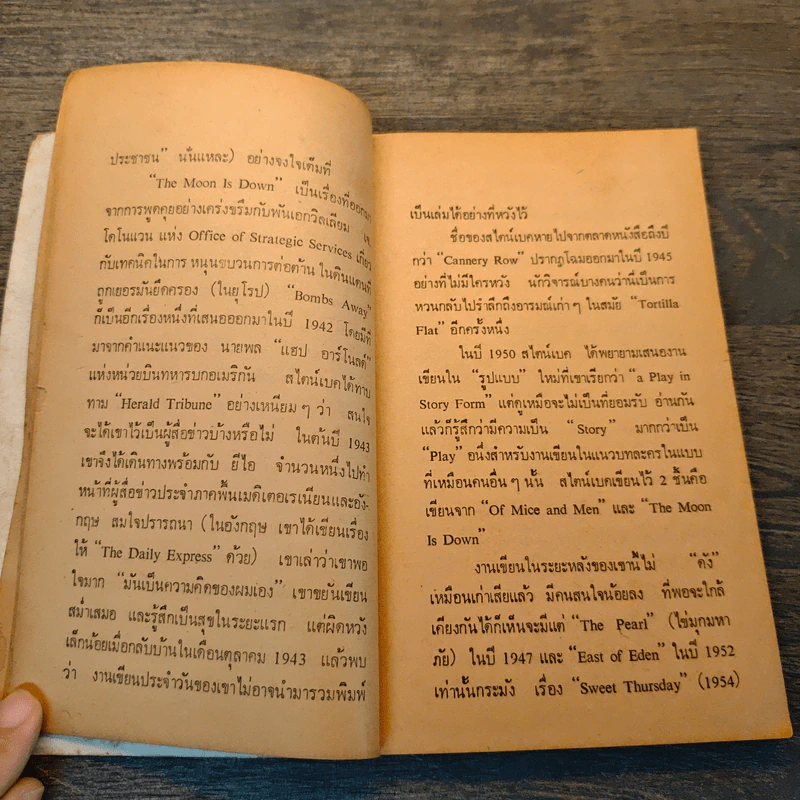 ประชาชน” นั่นแหละ) อย่างจงใจเต็มที่
“The Moon Is Down” เป็นเรื่องที่ออกมา
จากการพูดคุยอย่างเคร่งขรึมกับพันเอกวิลเลียม เจ.
โดโนแวน แห่ง Office of Strategic Services เกี่ยว
กับเทคนิคในการ หนุนขบวนการต่อต้าน ในดินแดนที่
ถูกเยอรมันยึดครอง (ในยุโรป) “Bombs Away”
ก็เป็นอีกเรื่องหนึ่งที่เสนอออกมาในปี 1942 โดยมีที่
มาจากคำแนะแนวของ นายพล “แฮป อาร์โนลด์”
แห่งหน่วยบินทหารบกอเมริกัน สไตน์เบคได้ทาบ
ทาม “Herald Tribune” อย่างเหนียม ๆ ว่า สนใจ
จะได้เขาไว้เป็นผู้สื่อข่าวบ้างหรือไม่ ในต้นปี 1943
เขาจึงได้เดินทางพร้อมกับ ยีไอ จำนวนหนึ่งไปทำ
หน้าที่ผู้สื่อข่าวประจำภาคพื้นเมดิเตอเรเนียนและอัง-
กฤษ สมใจปรารถนา (ในอังกฤษ เขาได้เขียนเรื่อง
ให้ “The Daily Express” ด้วย) เขาเล่าว่าเขาพอ
ใจมาก “มันเป็นความคิดของผมเอง” เขาขยันเขียน
สม่ำเสมอ และรู้สึกเป็นสุขในระยะแรก แต่ผิดหวัง
เล็กน้อยเมื่อกลับบ้านในเดือนตุลาคม 1943 แล้วพบ
ว่า งานเขียนประจำวันของเขาไม่อาจนำมารวมพิมพ์
เป็นเล่มได้อย่างที่หวังไว้
ชื่อของสไตน์เบคหายไปจากตลาดหนังสือถึงปี
กว่า “Cannery Row” ปรากฏโฉมออกมาในปี 1945
อย่างที่ไม่มีใครหวัง นักวิจารณ์บางคนว่านี่เป็นการ
หวนกลับไปรำลึกถึงอารมณ์เก่า ๆ ในสมัย “Tortilla
Flat” อีกครั้งหนึ่ง
ในปี 1950 สไตน์เบค ได้พยายามเสนองาน
เขียนใน “รูปแบบ” ใหม่ที่เขาเรียกว่า “a Play in
Story Form” แต่ดูเหมือจะไม่เป็นที่ยอมรับ อ่านกัน
แล้วก็รู้สึกว่ามีความเป็น “Story” มากกว่าเป็น
“Play” อนึ่งสำหรับงานเขียนในแนวบทละครในแบบ
ที่เหมือนคนอื่น ๆ นั้น สไตน์เบคเขียนไว้ 2 ชิ้นคือ
เขียนจาก “Of Mice and Men” และ “The Moon
Is Down”
งานเขียนในระยะหลังของเขานี้ไม่ “ดัง”
เหมือนเก่าเสียแล้ว มีคนสนใจน้อยลง ที่พอจะใกล้
เคียงกันได้ก็เห็นจะมีแต่ “The Pearl” (ไข่มุกมหา
ภัย) ในปี 1947 และ “East of Eden” ในปี 1952
เท่านั้นกระมัง เรื่อง “Sweet Thursday” (1954)